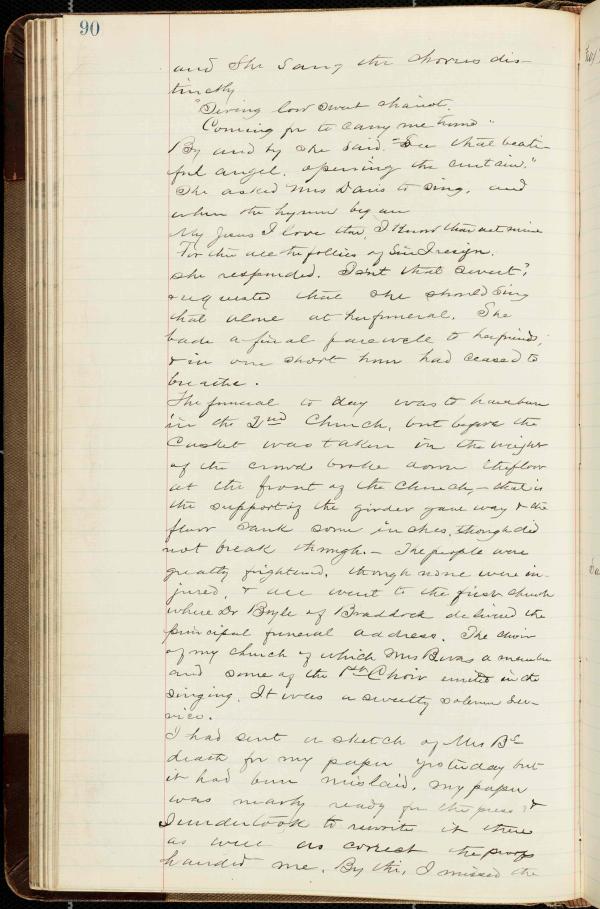 90
and she sang the chorus dis-
tinctly
"Swing low sweet chariot.
Coming for to carry me home"
By and by she said. "See that beati-
ful angel, opening the curtain."
She asked Mrs Davis to sing, and
when the hymn began
My Jesus I love thee, I know thou art mine
For thee all the follies of Sin I resign.
she responded. Isn't that sweet?,
& requested that she should sing
that alone at her funeral. She
bade a final farewell to her friends,
& in one short hour had ceased to
breathe.
The funeral to day was to have been
in the 2nd Church, but before the
Casket was taken in the weight
of the crowd broke down the floor
at the front of the Church, - that is
the support of the girder gave way & the
floor sank some inches, though did
not break through. - The people were
greatly frightened, though none were in-
jured, & all went to the first church
where Dr Boyle of Braddock delivered the
principal funeral address. The choir
of my church of which Mrs B was a member
and some of the 1st Choir united in the
singing. It was a sweetly solemn Ser-
vice.
I had sent a sketch of Mrs Bs
death for my paper yesterday but
it had been mislaid. My paper
was nearly ready for the press &
I undertook to rewrite it there
as well as correct the proofs
handed me. By this, I missed the